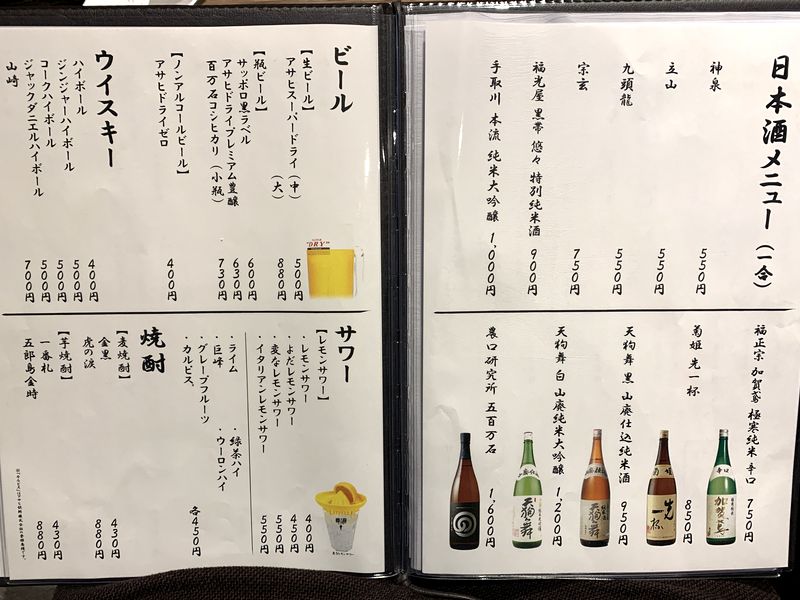 日本酒メニュー(一合)
神泉 550円
立山 550円
九頭龍 550円
宗玄 750円
福光屋 黒帯 悠々 特別純米酒 900円
手取川 本流 純米大吟醸 1,000円
福正宗 加賀鳶 極寒純米 辛口 750円
菊姫 先一杯 850円
天狗舞 黒 山廃仕込純米酒 950円
天狗舞 白 山廃純米大吟醸 1,200円
農口研究所 五百万石 1,600円
ビール
【生ビール】
アサヒスーパードライ(中) 500円
(大) 880円
【瓶ビール】
サッポロ黒ラベル 600円
アサヒドライプレミアム豊醸 630円
百万石コシヒカリ(小瓶) 730円
【ノンアルコールビール】
アサヒドライゼロ 400円
ウイスキー
ハイボール 400円
ジンジャーハイボール 500円
コークハイボール 500円
ジャックダニエルハイボール 500円
山崎 700円
サワー
【レモンサワー】
・レモンサワー 400円
・よだレモンサワー 450円
・変なレモンサワー 550円
・イタリアンレモンサワー 550円
・ライム
・巨峰
・グレープフルーツ
・カルピス
・緑茶ハイ
・ウーロンハイ
各450円
焼酎
【麦焼酎】
金黒 430円
虎の涙 880円
【芋焼酎】
一番札 430円
五郎島金時 880円
DRY
辛口
加賀鳶
菊姫
先一杯
天狗舞
天狗舞